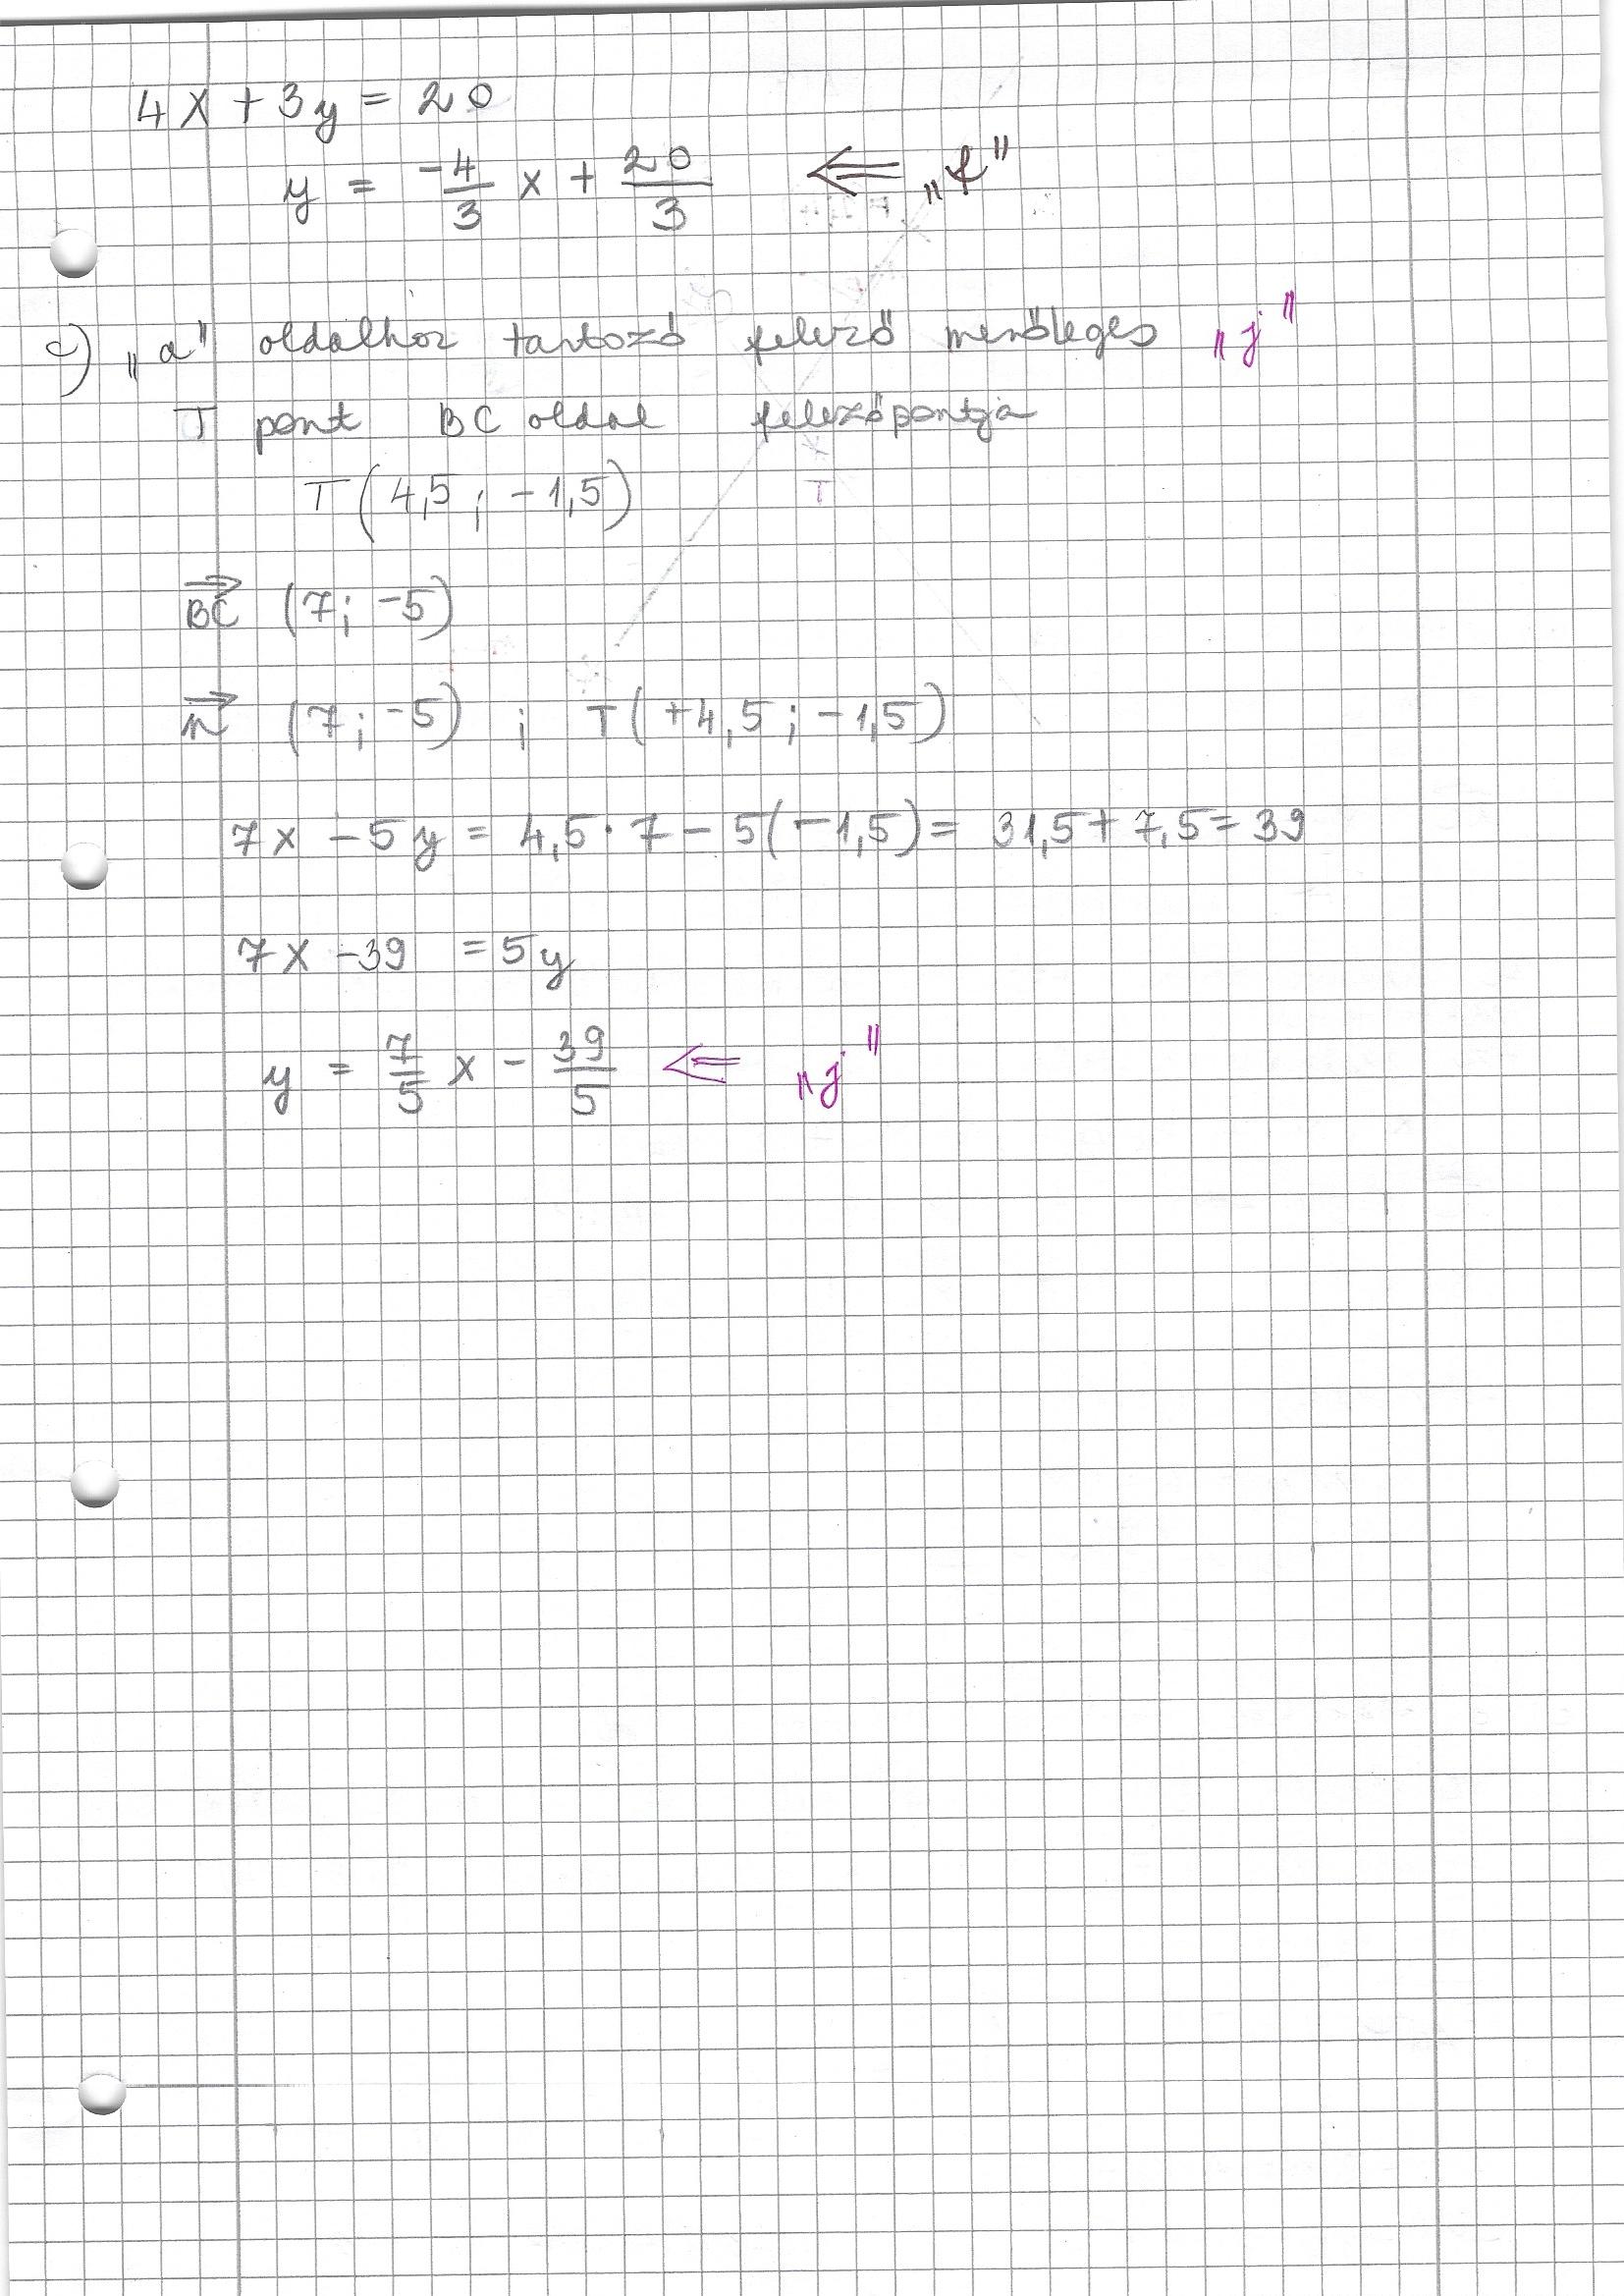 4x + 3y = 20
y = -4/3 x + 20/3 ⇐ „f"
c) „a" oldalhoz tartozó felező merőleges „j"
T pont BC oldal felezőpontja
T(4,5 ; -1,5)
T
BC→ (7; -5)
n→ (7; -5) ; T(+4,5 ; -1,5)
7x - 5y = 4,5 · 7 - 5(-1,5) = 31,5 + 7,5 = 39
7x - 39 = 5y
y = 7/5 x - 39/5 ⇐ „j"